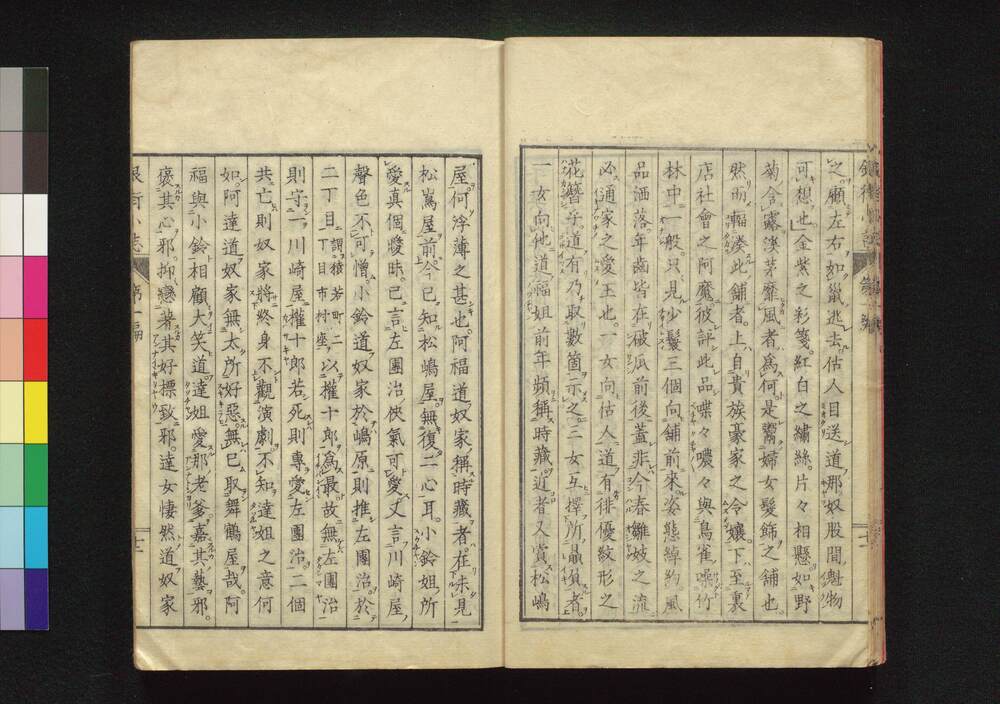 之顧左右如鼠逃去估人目送道那奴股間魁物
可想也金紫之彩箋紅白之繡絲片々相懸如野
菊含露湊茅靡風者爲何是鬻婦女髮飾之舖也
然而輻湊此舖者上自貴族豪家之令孃下至裏
店社會之阿魔彼評此品喋々噥々與鳥雀噪竹
林中一般只見妙鬟三個向舖前來姿態綽約風
品洒落年齒皆在破瓜前後蓋非今春雛妓之流
必通家之愛王也一女向估人道有俳優紋形之
花簪乎道有乃取數箇示之二女互擇所贔負者
一女向他道福姐前年頻稱時藏近者又賞松嶋
屋何浮薄之甚也阿福道奴家稱時藏者在未見
松嶌屋前今已知松嶋屋無復二心耳小鈴姐所
愛眞個曖昧已言左團治俠氣可愛又言川崎屋
聲色不可憎小鈴道奴家於嶋原則推左團治於
二丁目謂猿若町二丁目市村座以權十郎爲最故無左團治
則守一川崎屋權十郎若死則專愛左團治二個
共亡則奴家將終身不觀演劇不知達姐之意何
如阿達道奴家無太所好惡無已取舞鶴屋哉阿
福與小鈴相顧大笑道達姐愛那老爹嘉其藝邪
褒其心邪抑戀著其好標致邪達女悽然道奴家
第一編